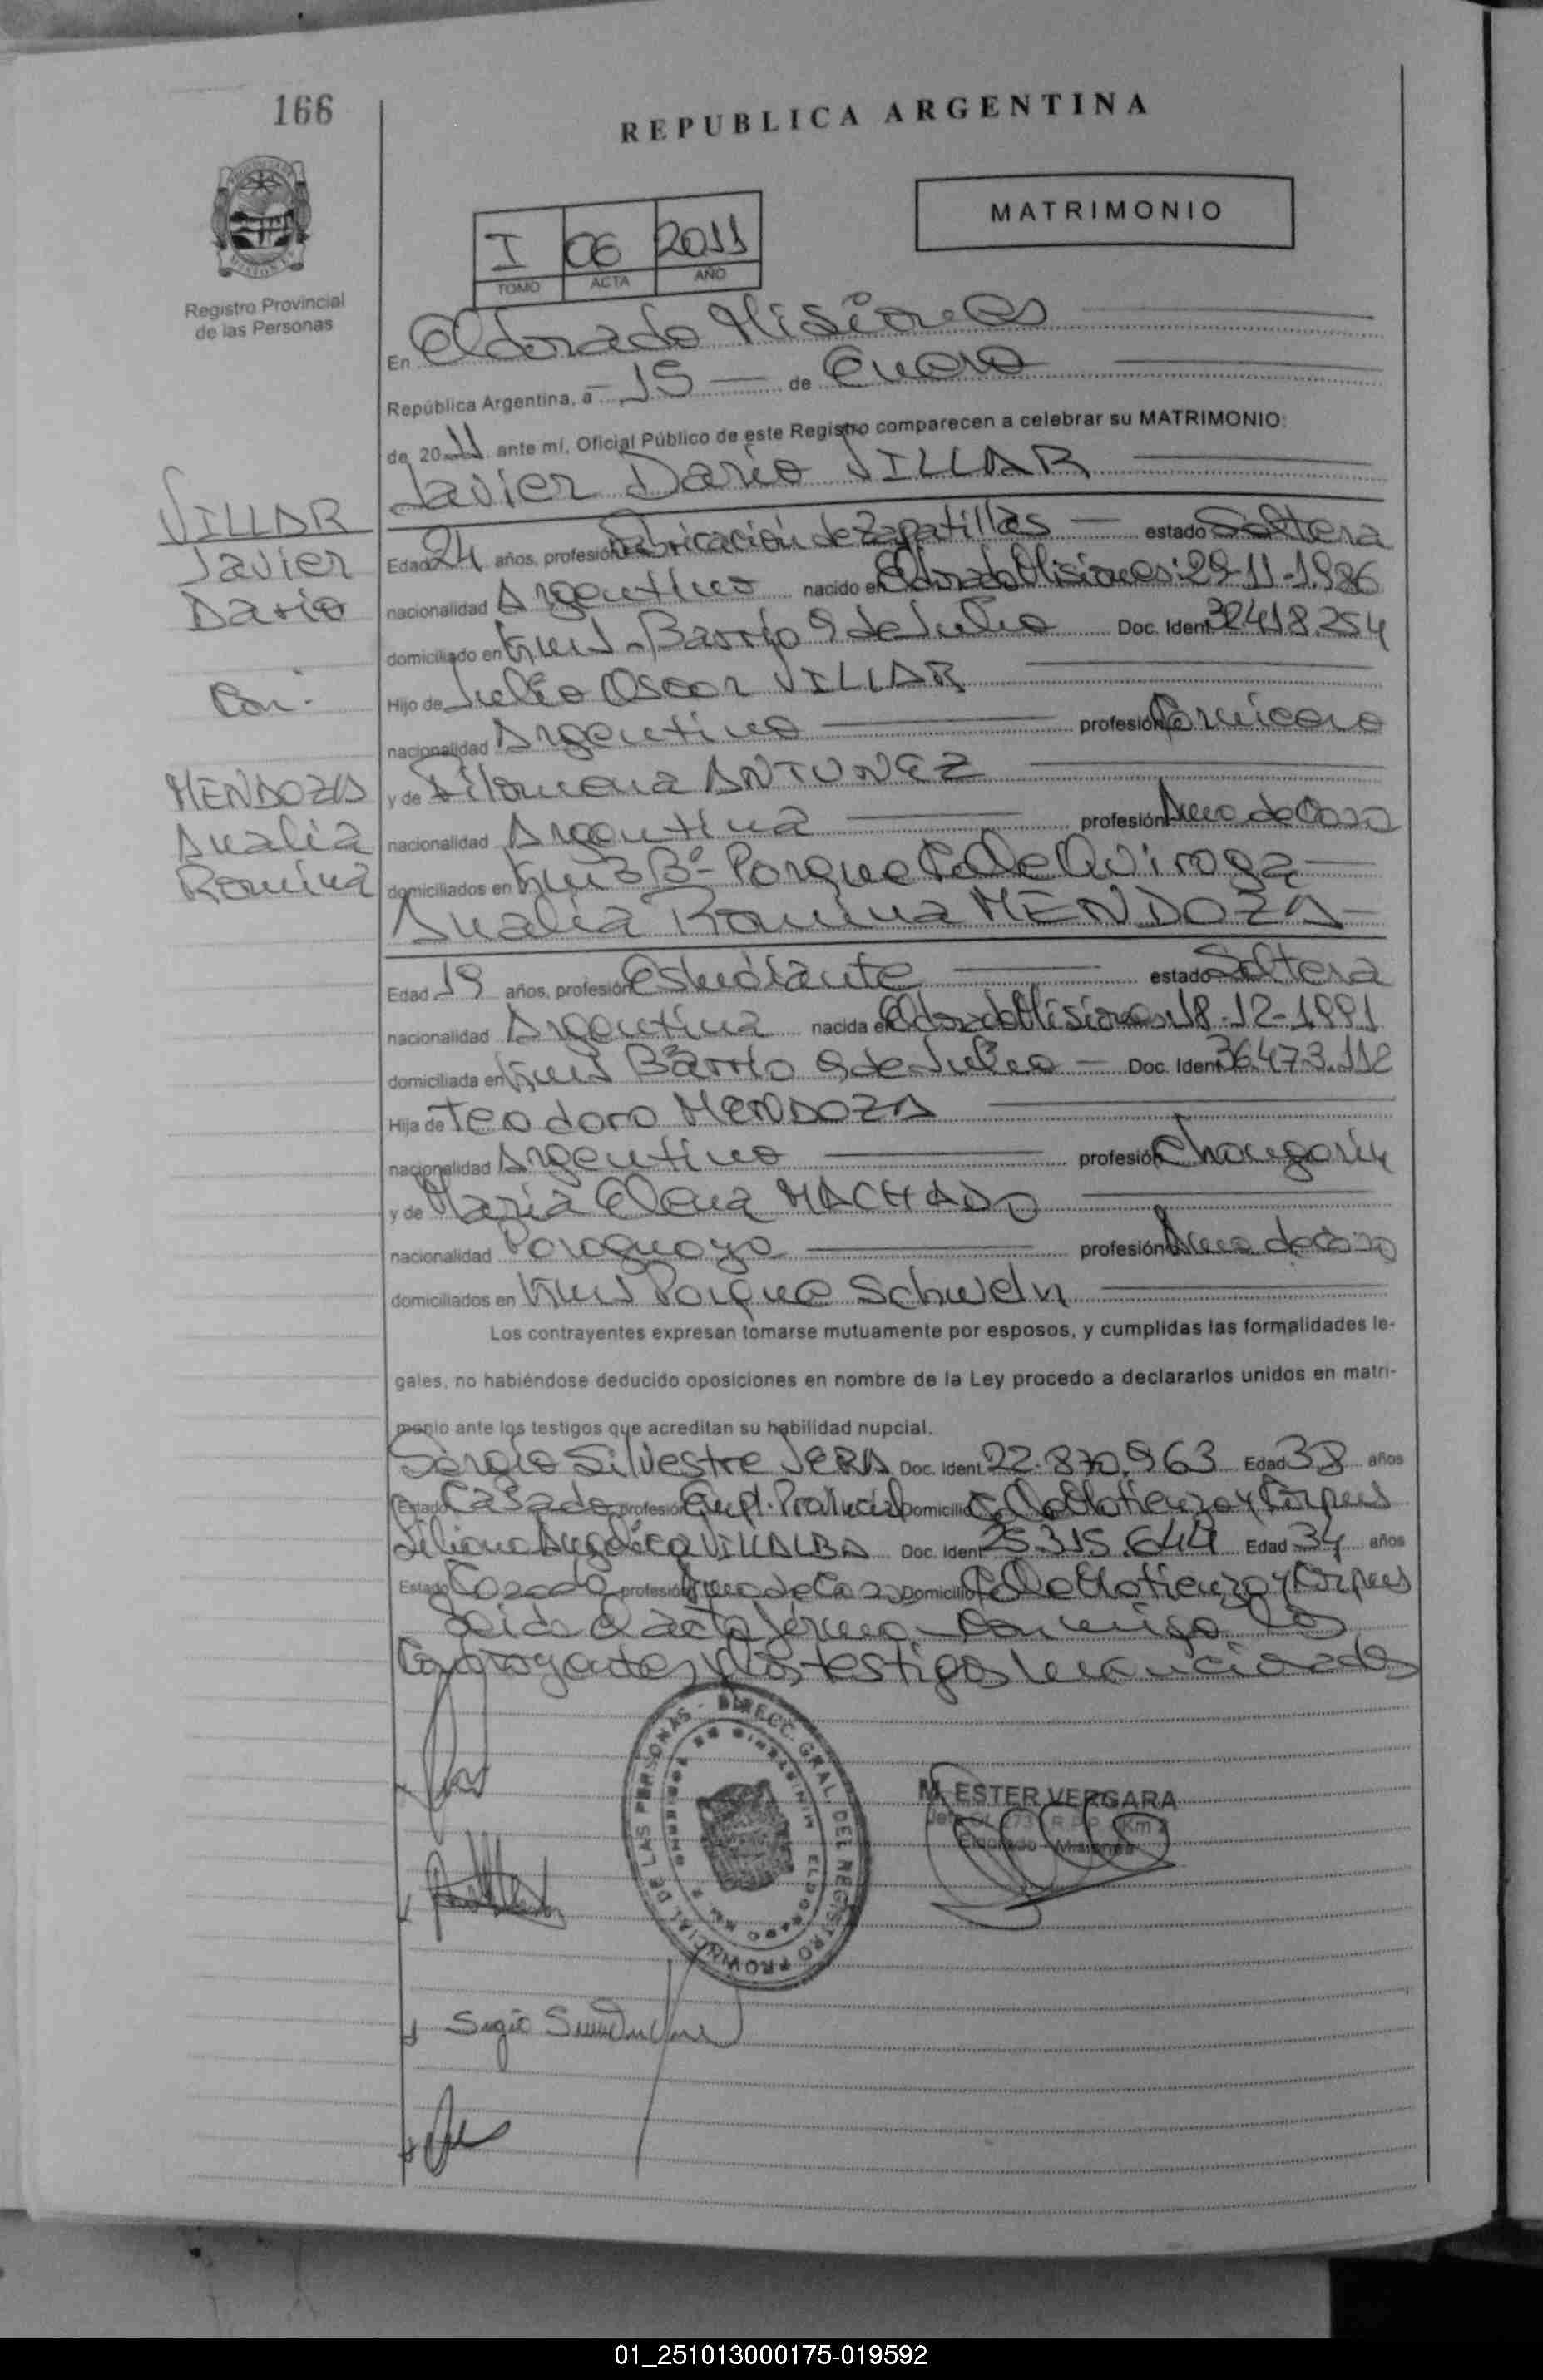 166
REPUBLICA ARGENTINA
MATRIMONIO
I 06 2011
TOMO ACTA AÑO
Registro Provincial
de las Personas
En Eldorado Misiones
República Argentina, a - 15 - de Enero
de 2011 ante mí, Oficial Público de este Registro comparecen a celebrar su MATRIMONIO:
Javier Dario VILLAR
VILLAR
Javier
Dario
Con-
MENDOZA
Analia
Romina
Edad 24 años, profesión Fabricación de Zapatillas - estado Soltera
nacionalidad Argentino nacido en Eldorado Misiones: 29-11-1986
domiciliado en Barrio 9 de Julio Doc. Ident. 32.418.254
Hijo de Julio Oscar VILLAR
nacionalidad Argentino profesión Carnicero
y de Filomena ANTUNEZ
nacionalidad Argentina profesión Ama de Casa
domiciliados en Km 3 Bº- Parque Calle Quiroga
Analia Romina MENDOZA
Edad 19 años, profesión Estudiante estado Soltera
nacionalidad Argentina nacida en Eldorado Misiones: 18-12-1991
domiciliada en Barrio 9 de Julio - Doc. Ident. 36.473.112
Hija de Teodoro MENDOZA
nacionalidad Argentino profesión Changarin
y de Maria Elena MACHADO
nacionalidad Paraguaya profesión Ama de Casa
domiciliados en Parque Schweln
Los contrayentes expresan tomarse mutuamente por esposos, y cumplidas las formalidades le-
gales, no habiéndose deducido oposiciones en nombre de la Ley procedo a declararlos unidos en matri-
monio ante los testigos que acreditan su habilidad nupcial.
Sergio Silvestre VERA Doc. Ident. 22.870.963 Edad 38 años
Estado Casado profesión Empl. Provincial Domicilio Calle Matienzo y Corpus
Liliana Angélica VILLALBA Doc. Ident. 25.315.644 Edad 34 años
Estado Casada profesión Ama de Casa Domicilio Calle Matienzo y Corpus
Leida el acta firman conmigo los
Contrayentes y los testigos mencionados
DIRECC. GRAL. DEL REGISTRO PROVINCIAL DE LAS PERSONAS
M. ESTER VERGARA
Eldorado - Misiones
Sergio
01_251013000175-019592